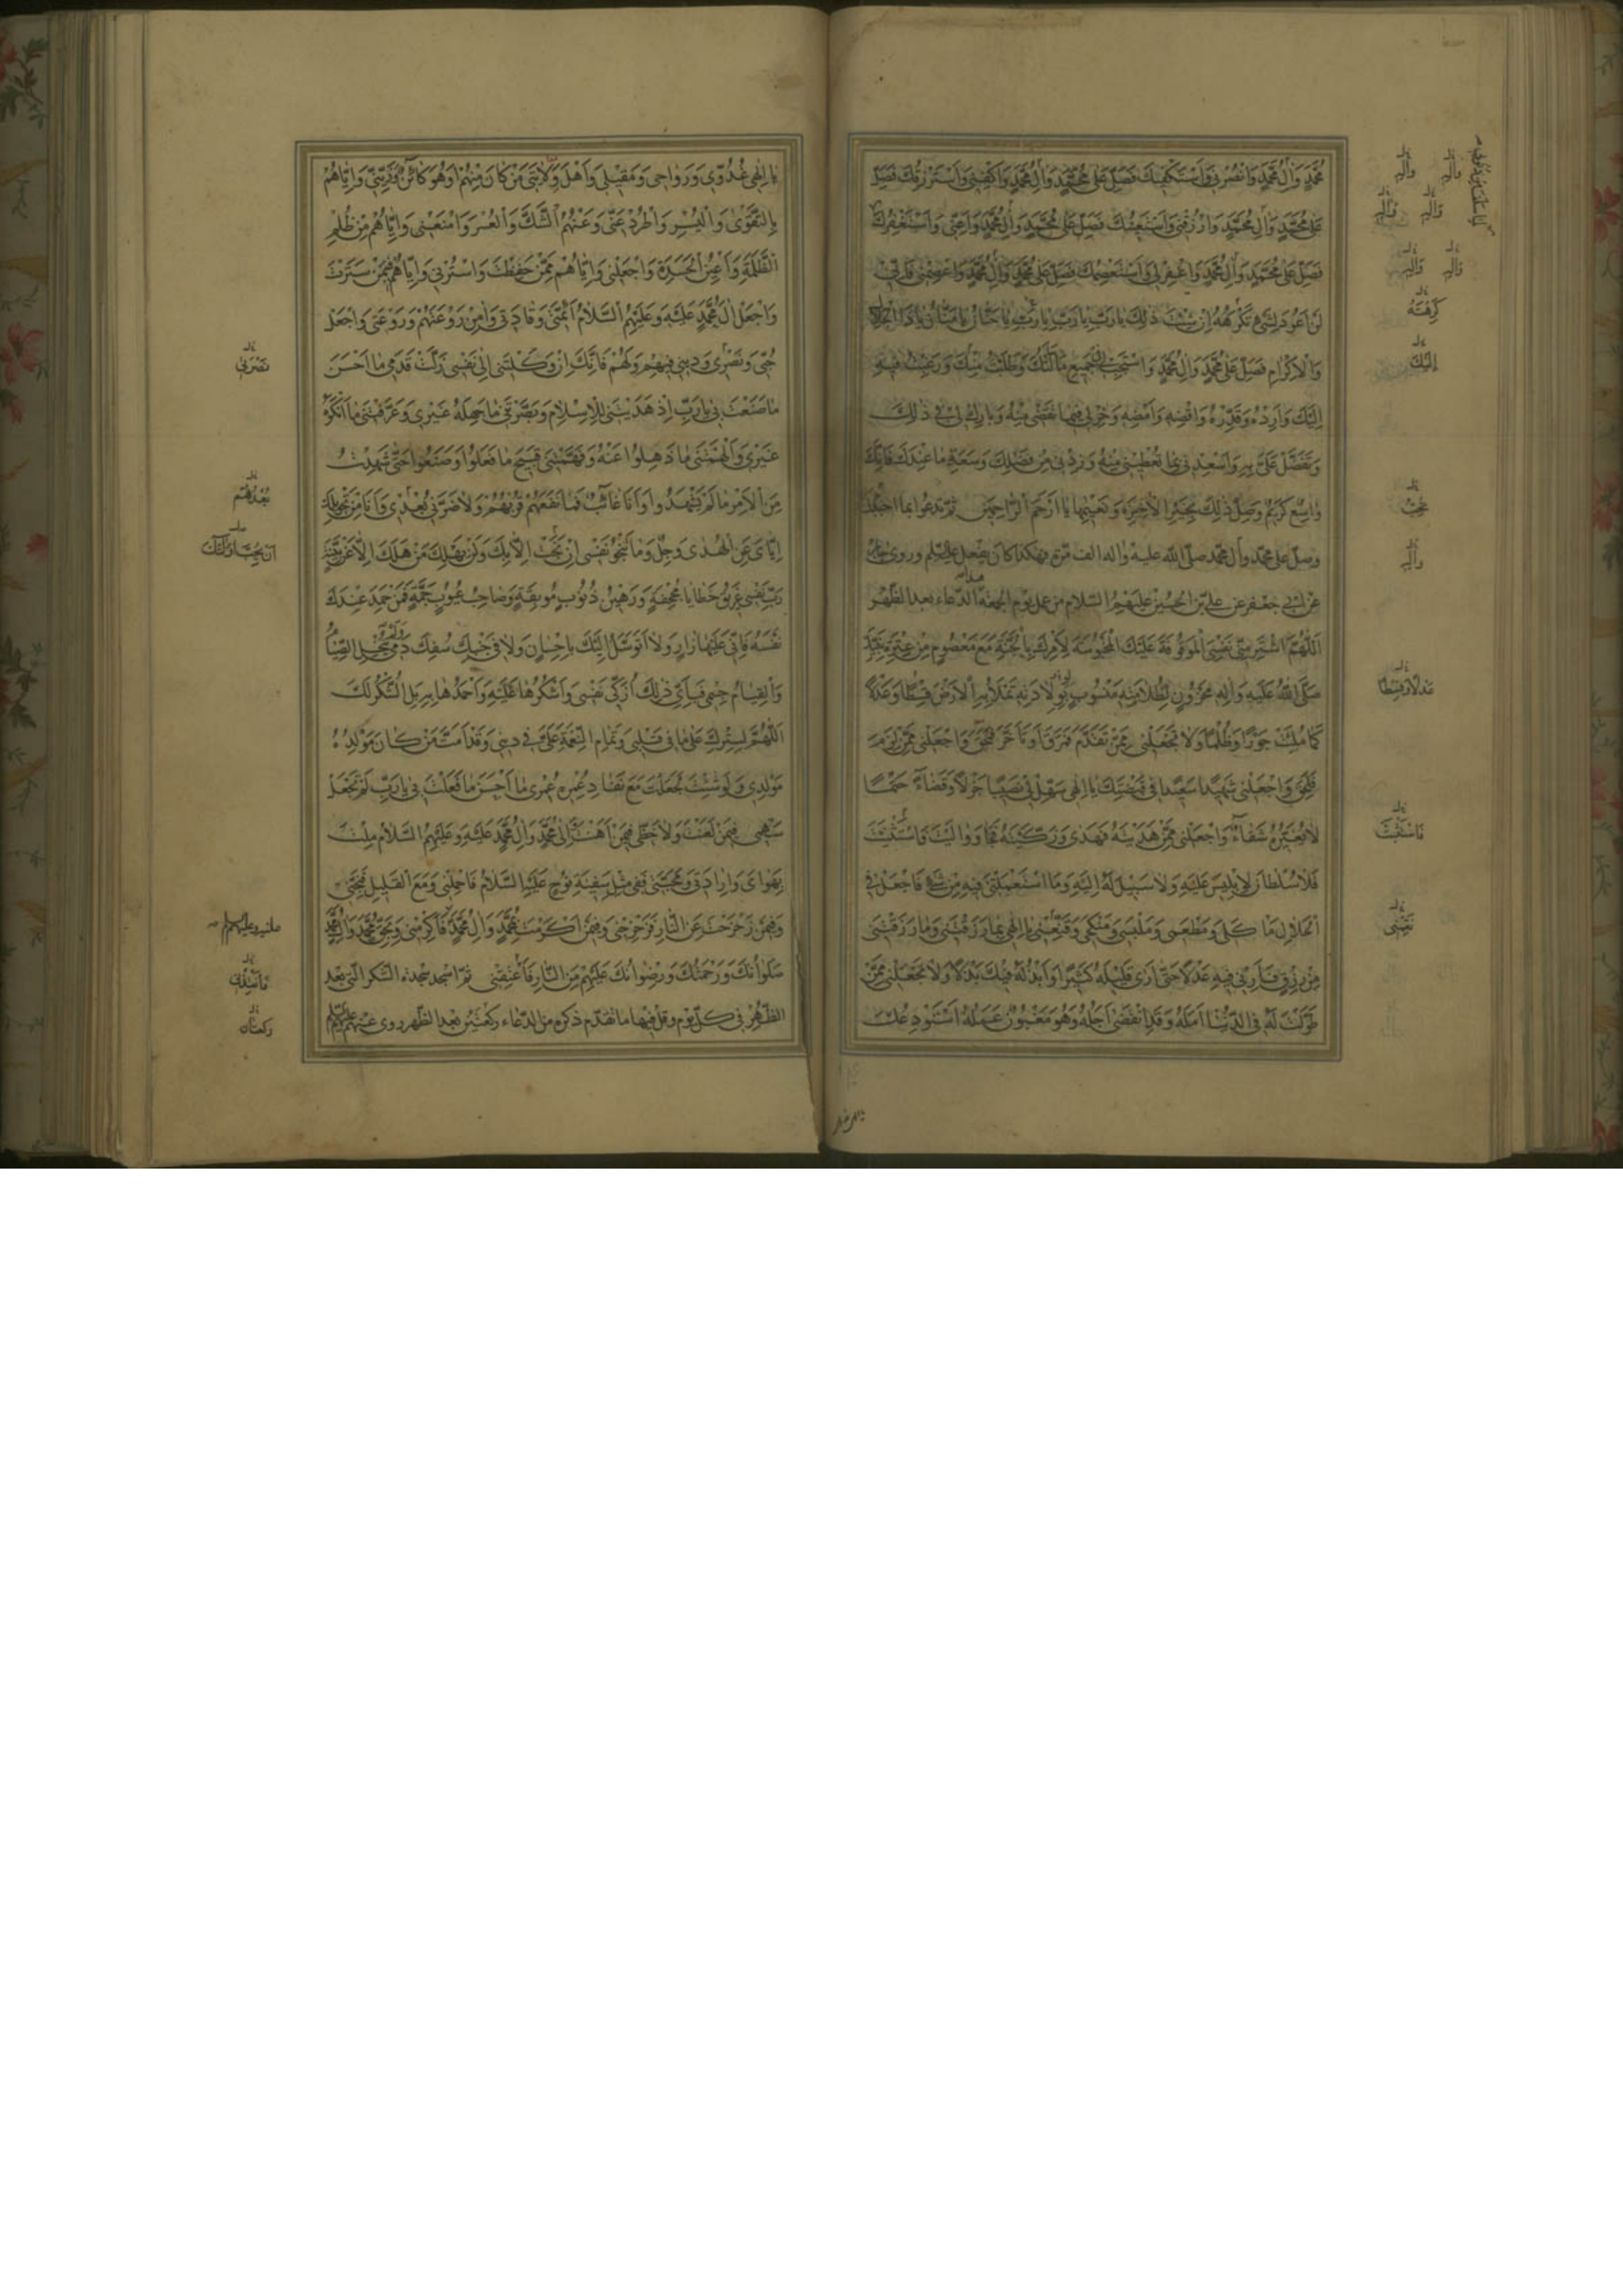 مُحَمَّدٍ وَآلِ مُحَمَّدٍ وَانْصُرْنِي وَأَسْتَكْفِيكَ فَصَلِّ عَلَى مُحَمَّدٍ وَآلِ مُحَمَّدٍ وَاكْفِنِي وَأَسْتَرْزِقُكَ فَصَلِّ
عَلَى مُحَمَّدٍ وَآلِ مُحَمَّدٍ وَارْزُقْنِي وَأَسْتَعِينُكَ فَصَلِّ عَلَى مُحَمَّدٍ وَآلِ مُحَمَّدٍ وَأَعِنِّي وَأَسْتَغْفِرُكَ
فَصَلِّ عَلَى مُحَمَّدٍ وَآلِ مُحَمَّدٍ وَاغْفِرْ لِي وَأَسْتَعْصِمُكَ فَصَلِّ عَلَى مُحَمَّدٍ وَآلِ مُحَمَّدٍ وَاعْصِمْنِي فَإِنِّي
لَنْ أَعُودَ لِشَيْءٍ تَكْرَهُهُ إِنْ شِئْتَ ذَلِكَ يَا رَبِّ يَا رَبِّ يَا رَبِّ يَا رَبِّ يَا حَنَّانُ يَا مَنَّانُ يَا ذَا الْجَلَالِ
وَالْإِكْرَامِ فَصَلِّ عَلَى مُحَمَّدٍ وَآلِ مُحَمَّدٍ وَاسْتَجِبْ لِي جَمِيعِ مَا سَأَلْتُكَ وَطَلَبْتُ مِنْكَ وَرَغِبْتُ فِيهِ
إِلَيْكَ وَأَرِدْهُ وَقَدِّرْهُ وَاقْضِهِ وَأَمْضِهِ وَخِرْ لِي فِيمَا تَقْضِي مِنْهُ وَبَارِكْ لِي فِي ذَلِكَ
وَتَفَضَّلْ عَلَيَّ بِهِ وَأَسْعِدْنِي بِمَا تُعْطِينِي مِنْهُ وَزِدْنِي مِنْ فَضْلِكَ وَسَعَةِ مَا عِنْدَكَ فَإِنَّكَ
وَاسِعٌ كَرِيمٌ وَصِلْ ذَلِكَ بِخَيْرِ الْآخِرَةِ وَنَعِيمِهَا يَا أَرْحَمَ الرَّاحِمِينَ ثم تدعوا بما احببت
وصلّ على محمّد وآل محمّد صلّى الله عليه واله الف مرّة فهكذا كان يفعل عليه السّلم وروى جابر
عن ابي جعفر عن علي بن الحسين عليهم السّلام من عمل يوم الجمعة الدّعاء بعد الظّهر
اللَّهُمَّ اشْتَرِ مِنِّي نَفْسِيَ الْمَوْقُوفَةَ عَلَيْكَ الْمَحْبُوسَةَ لِأَمْرِكَ بِالْجَنَّةِ مَعَ مَعْصُومٍ مِنْ عِتْرَةِ نَبِيِّكَ
صَلَّى اللَّهُ عَلَيْهِ وَآلِهِ مَخْزُونٍ لِظُلَامَتِهِ مَنْسُوبٍ بِوِلَادَتِهِ تَمْلَأُ بِهِ الْأَرْضَ قِسْطًا وَعَدْلًا
كَمَا مُلِئَتْ جَوْرًا وَظُلْمًا وَلَا تَجْعَلْنِي مِمَّنْ تَقَدَّمَ فَمَرَقَ أَوْ تَأَخَّرَ فَمُحِقَ وَاجْعَلْنِي مِمَّنْ لَزِمَ
فَلَحِقَ وَاجْعَلْنِي شَهِيدًا سَعِيدًا فِي قَبْضَتِكَ يَا إِلَهِي سَهِّلْ لِي نَصِيبًا جَزْلًا وَقَضَاءً حَتْمًا
لَا يُغَيِّرُهُ شَقَاءٌ وَاجْعَلْنِي مِمَّنْ هَدَيْتَهُ فَهَدَى وَزَكَّيْتَهُ فَنَجَا وَوَالَيْتَ فَاسْتَثْنَيْتَ
فَلَا سُلْطَانَ لِإِبْلِيسَ عَلَيْهِ وَلَا سَبِيلَ لَهُ إِلَيْهِ وَمَا اسْتَعْمَلْتَنِي فِيهِ مِنْ شَيْءٍ فَاجْعَلْ فِي
الْحَلَالِ مَأْكَلِي وَمَطْعَمِي وَمَلْبَسِي وَمَنْكَحِي وَقَنِّعْنِي يَا إِلَهِي بِمَا رَزَقْتَنِي وَمَا رَزَقْتَنِي
مِنْ رِزْقٍ فَأَرِنِي فِيهِ عَدْلًا حَتَّى أَرَى قَلِيلَهُ كَثِيرًا وَأَبْذُلَهُ فِيكَ بَذْلًا وَلَا تَجْعَلْنِي مِمَّنْ
طَوَّلْتَ لَهُ فِي الدُّنْيَا أَمَلَهُ وَقَدِ انْقَضَى أَجَلُهُ وَهُوَ مَغْبُونٌ عَمَلُهُ أَسْتَوْدِعُكَ
وَآلِهِ
وَآلِهِ
وَآلِهِ
وَآلِهِ
وَآلِهِ
وَآلِهِ
كَرِهْتَهُ
إِلَيْكَ
تُحِبُّ
وآلِهِ
عَدْلًا وَقِسْطًا
فَاسْتَثْبَتَ
يَا إِلَهِي غُدُوِّي وَرَوَاحِي وَمَقِيلِي وَأَهْلَ وَلَايَتِي مَنْ كَانَ مِنْهُمْ أَوْ هُوَ كَائِنٌ زَيِّنِّي وَإِيَّاهُمْ
بِالتَّقْوَى وَالْيُسْرِ وَاطْرُدْ عَنِّي وَعَنْهُمُ الشَّكَّ وَالْعُسْرَ وَامْنَعْنِي وَإِيَّاهُمْ مِنْ ظُلْمِ
الظَّلَمَةِ وَأَعْيُنِ الْحَسَدَةِ وَاجْعَلْنِي وَإِيَّاهُمْ مِمَّنْ حَفِظْتَ وَاسْتُرْنِي وَإِيَّاهُمْ فِيمَنْ سَتَرْتَ
وَاجْعَلْ آلَ مُحَمَّدٍ عَلَيْهِ وَعَلَيْهِمُ السَّلَامُ أَئِمَّتِي وَقَادَتِي وَآمِنْ رَوْعَتَهُمْ وَرَوْعَتِي وَاجْعَلْ
حُبِّي وَنَصْرِي وَدِينِي فِيهِمْ وَلَهُمْ فَإِنَّكَ إِنْ وَكَلْتَنِي إِلَى نَفْسِي زَلَّتْ قَدَمِي مَا أَحْسَنَ
مَا صَنَعْتَ بِي يَا رَبِّ إِذْ هَدَيْتَنِي لِلْإِسْلَامِ وَبَصَّرْتَنِي مَا جَهِلَهُ غَيْرِي وَعَرَّفْتَنِي مَا أَنْكَرَهُ
غَيْرِي وَأَلْهَمْتَنِي مَا ذَهِلُوا عَنْهُ وَفَهَّمْتَنِي قَبِيحَ مَا فَعَلُوا وَصَنَعُوا حَتَّى شَهِدْتُ
مِنَ الْأَمْرِ مَا لَمْ يَشْهَدُوا وَأَنَا غَائِبٌ فَمَا نَفَعَهُمْ قُرْبُهُمْ وَلَا ضَرَّنِي بُعْدِي وَأَنَا مِنْ تَحْوِيلِكَ
إِيَّايَ عَنِ الْهُدَى وَجِلٌ وَمَا تَنْجُو نَفْسِي إِنْ نَجَتْ إِلَّا بِكَ وَلَنْ يَهْلِكَ مَنْ هَلَكَ إِلَّا عَنْ بَيِّنَةٍ
رَبِّ نَفْسِي غَرِيقُ خَطَايَا مُجْحِفَةٍ وَرَهِينُ ذُنُوبٍ مُوبِقَةٍ وَصَاحِبُ عُيُوبٍ جَمَّةٍ فَمَنْ حَمِدَ عِنْدَكَ
نَفْسَهُ فَإِنِّي عَلَيْهَا زَارٍ وَلَا أَتَوَسَّلُ إِلَيْكَ بِإِحْسَانٍ وَلَا فِي جَنْبِكَ سُفِكَ دَمِي وَلَمْ يُنْحِلِ الصِّيَامُ
وَالْقِيَامُ جِسْمِي فَبِأَيِّ ذَلِكَ أُزَكِّي نَفْسِي وَأَشْكُرُهَا عَلَيْهِ وَأَحْمَدُهَا بِهِ بَلِ الشُّكْرُ لَكَ
اللَّهُمَّ لِسِتْرِكَ عَلَى مَا فِي قَلْبِي وَتَمَامِ النِّعْمَةِ عَلَيَّ فِي دِينِي وَقَدْ أَمَتَّ مَنْ كَانَ مَوْلِدُهُ
مَوْلِدِي وَلَوْ شِئْتَ لَجَعَلْتَ مَعَ نَفَادِ عُمُرِهِ عُمُرِي مَا أَحْسَنَ مَا فَعَلْتَ بِي يَا رَبِّ لَمْ تَجْعَلْ
سَهْمِي فِيمَنْ لَعَنْتَ وَلَا حَظِّي فِيمَنْ أَهَنْتَ إِلَى مُحَمَّدٍ وَآلِ مُحَمَّدٍ عَلَيْهِ وَعَلَيْهِمُ السَّلَامُ مِلْتُ
بِهَوَايَ وَإِرَادَتِي وَمَحَبَّتِي فَفِي مِثْلِ سَفِينَةِ نُوحٍ عَلَيْهِ السَّلَامُ فَاحْمِلْنِي وَمَعَ الْقَلِيلِ فَنَجِّنِي
وَفِيمَنْ زَحْزَحْتَ عَنِ النَّارِ فَزَحْزِحْنِي وَفِيمَنْ أَكْرَمْتَ بِمُحَمَّدٍ وَآلِ مُحَمَّدٍ فَأَكْرِمْنِي وَبِحَقِّ مُحَمَّدٍ وَآلِ مُحَمَّدٍ
صَلَوَاتُكَ وَرَحْمَتُكَ وَرِضْوَانُكَ عَلَيْهِمْ مِنَ النَّارِ فَأَعْتِقْنِي ثمّ اسجد سجدة الشّكر الّتي بعد
الظّهر في كلّ يوم وقل فيها ما تقدّم ذكره من الدّعاء ركعتين بعد الظّهر روى عنهم عليهم السّلم
بُعْدُهُمْ
ركعتان